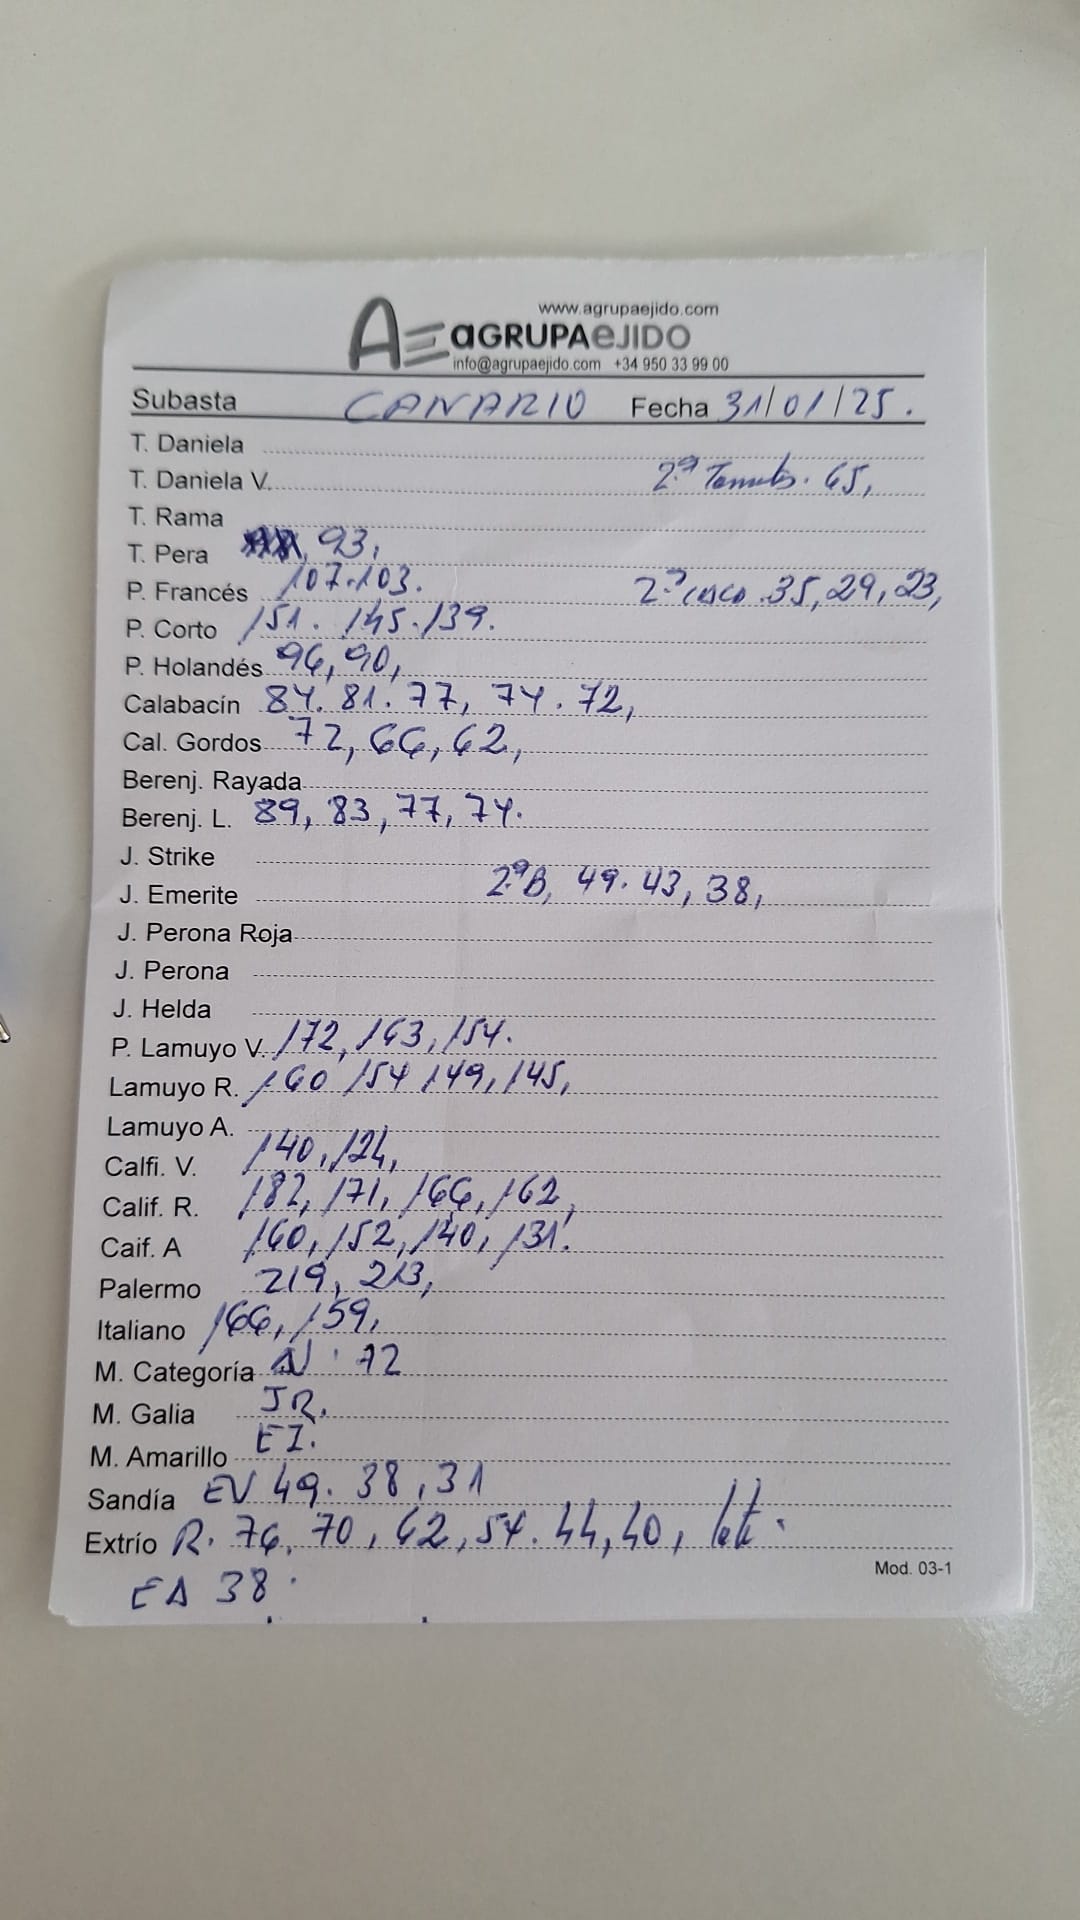 www.agrupaejido.com
AE aGRUPAeJIDO
info@agrupaejido.com +34 950 33 99 00
Subasta CANARIO Fecha 31/01/25.
T. Daniela
T. Daniela V. 2ª 65,
T. Rama
T. Pera 93,
P. Francés 107.103. 2ª casco 35, 29, 23,
P. Corto 151. 145. 139.
P. Holandés 96, 90,
Calabacín 84. 81. 77, 74. 72,
Cal. Gordos 72, 66, 62,
Berenj. Rayada
Berenj. L. 89, 83, 77, 74.
J. Strike
J. Emerite 2ªB, 49. 43, 38,
J. Perona Roja
J. Perona
J. Helda
P. Lamuyo V. 172, 163, 154.
Lamuyo R. 160 154 149, 145,
Lamuyo A.
Calfi. V. 140, 124,
Calif. R. 182, 171, 166, 162,
Caif. A 160, 152, 140, 131.
Palermo 219, 213,
Italiano 166, 159,
M. Categoría N. 72
M. Galia JR.
M. Amarillo EI.
Sandía EV 49. 38, 31
Extrío R. 76, 70, 62, 54. 44, 40,
Mod. 03-1
EA 38.